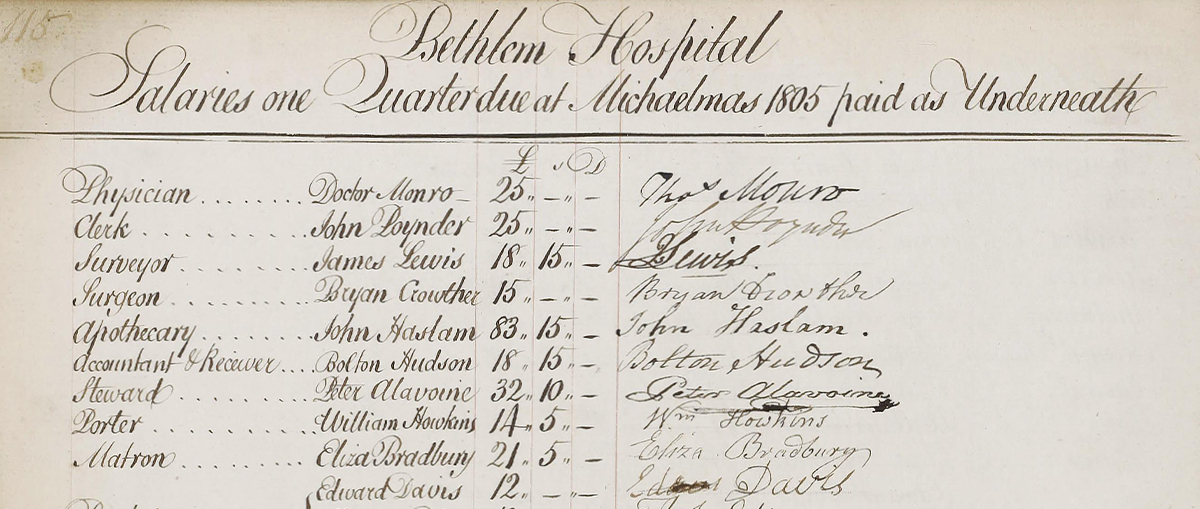 115
Bethlem Hospital
Salaries one Quarter due at Michaelmas 1805 paid as Underneath
£ s D
Physician ........ Doctor Monro – 25 „ – „ – Thos. Monro
Clerk .......... John Poynder 25 „ – „ – John Poynder
Surveyor ........ James Lewis 18 „ 15 „ – Lewis.
Surgeon ......... Bryan Crowther 15 „ – „ – Bryan Crowther
Apothecary ....... John Haslam 83 „ 15 „ – John Haslam .
Accountant & Receiver ... Bolton Hudson 18 „ 15 „ – Bolton Hudson
Steward ......... Peter Alavoine 32 „ 10 „ – Peter Alavoine
Porter .......... William Howkins 14 „ 5 „ – Wm Howkins
Matron ......... Eliza Bradbury 21 „ 5 „ – Eliza Bradbury
Edward Davis 12 „ – „ – Davis